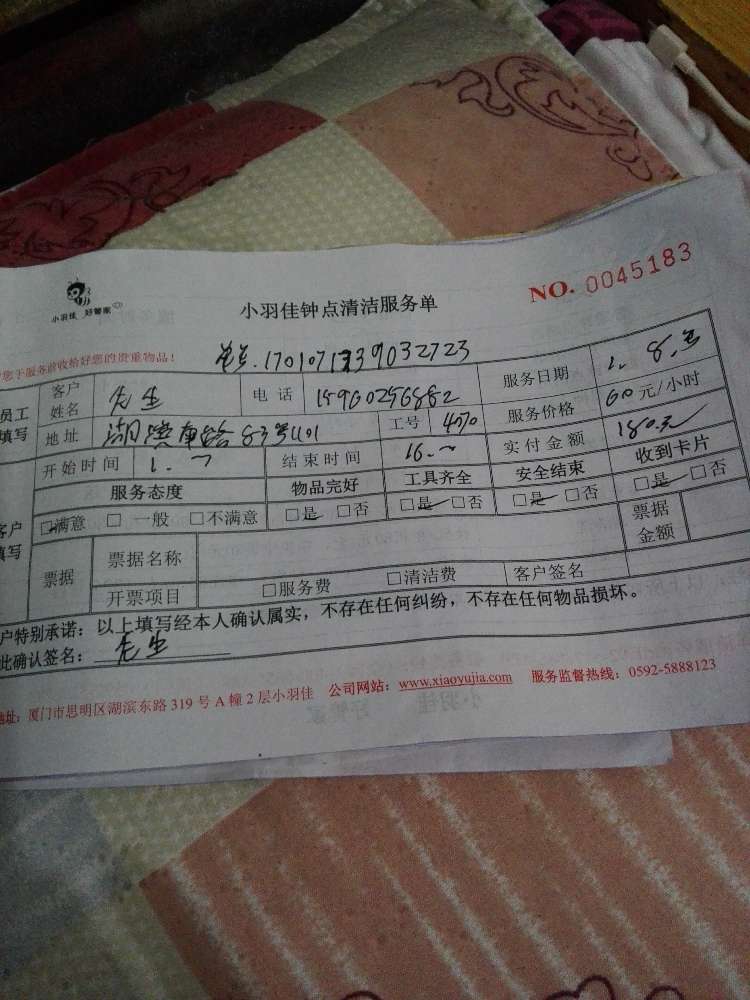 小羽佳 好管家
小羽佳钟点清洁服务单
NO. 0045183
您于服务前收拾好您的贵重物品!
170107139032723
员工填写 客户姓名 先生 电话 15960256882 服务日期 1. 8.
地址 湖滨南路83号401 工号 4070 服务价格 60元/小时
开始时间 1. 结束时间 16. 实付金额 180元 收到卡片
服务态度 物品完好 工具齐全 安全结束 □是 □否
□满意 □一般 □不满意 □是 □否 □是 □否 □是 □否 票据金额
客户填写 票据 票据名称
开票项目 □服务费 □清洁费 客户签名
户特别承诺:以上填写经本人确认属实,不存在任何纠纷,不存在任何物品损坏。
此确认签名: 先生
地址:厦门市思明区湖滨东路319号A幢2层小羽佳 公司网站:www.xiaoyujia.com 服务监督热线:0592-5888123